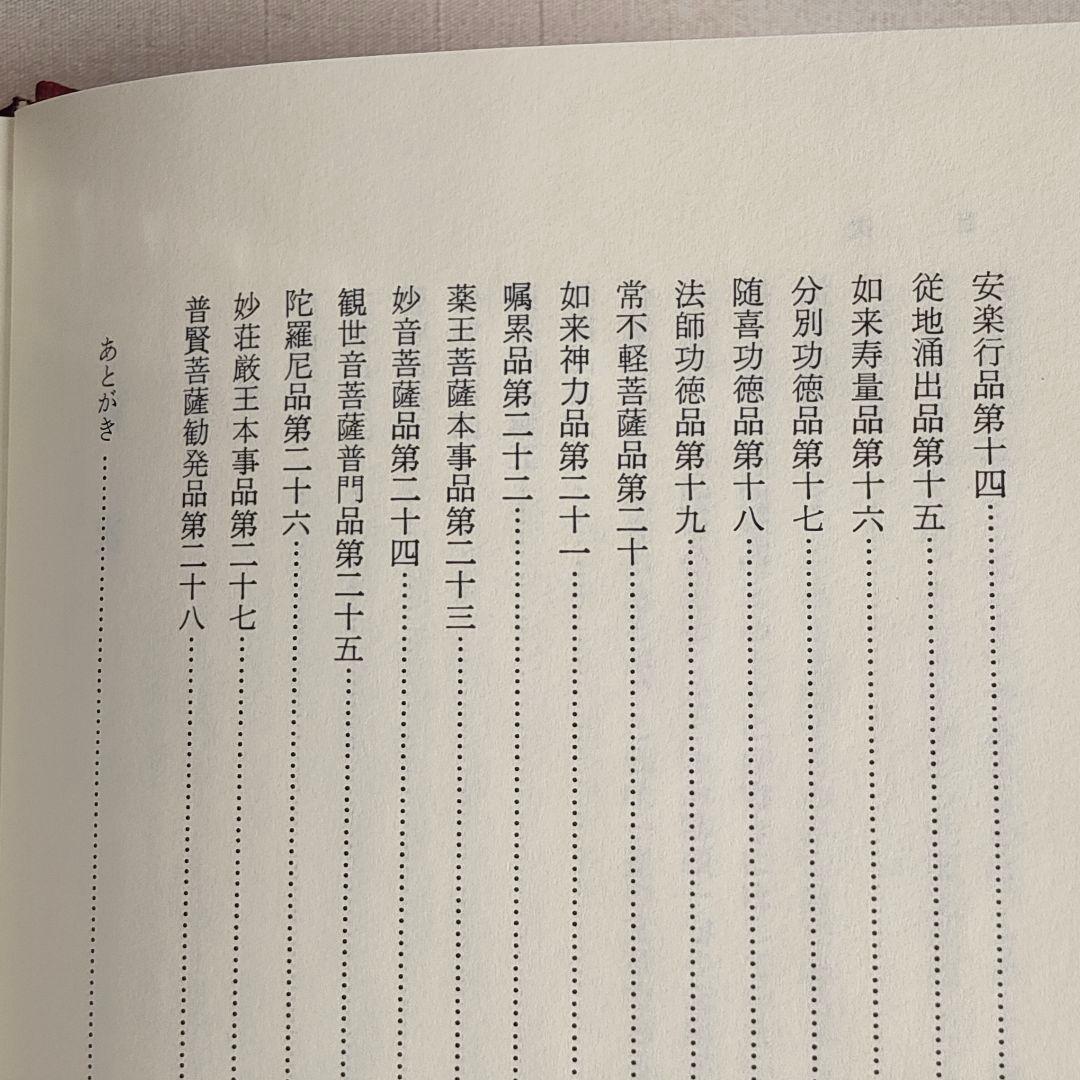 安楽行品第十四……………………
従地涌出品第十五……………………
如来寿量品第十六……………………
分別功徳品第十七……………………
随喜功徳品第十八……………………
法師功徳品第十九……………………
常不軽菩薩品第二十……………………
如来神力品第二十一……………………
嘱累品第二十二……………………
薬王菩薩本事品第二十三……………………
妙音菩薩品第二十四……………………
観世音菩薩普門品第二十五……………………
陀羅尼品第二十六……………………
妙荘厳王本事品第二十七……………………
普賢菩薩勧発品第二十八……………………
あとがき……………………